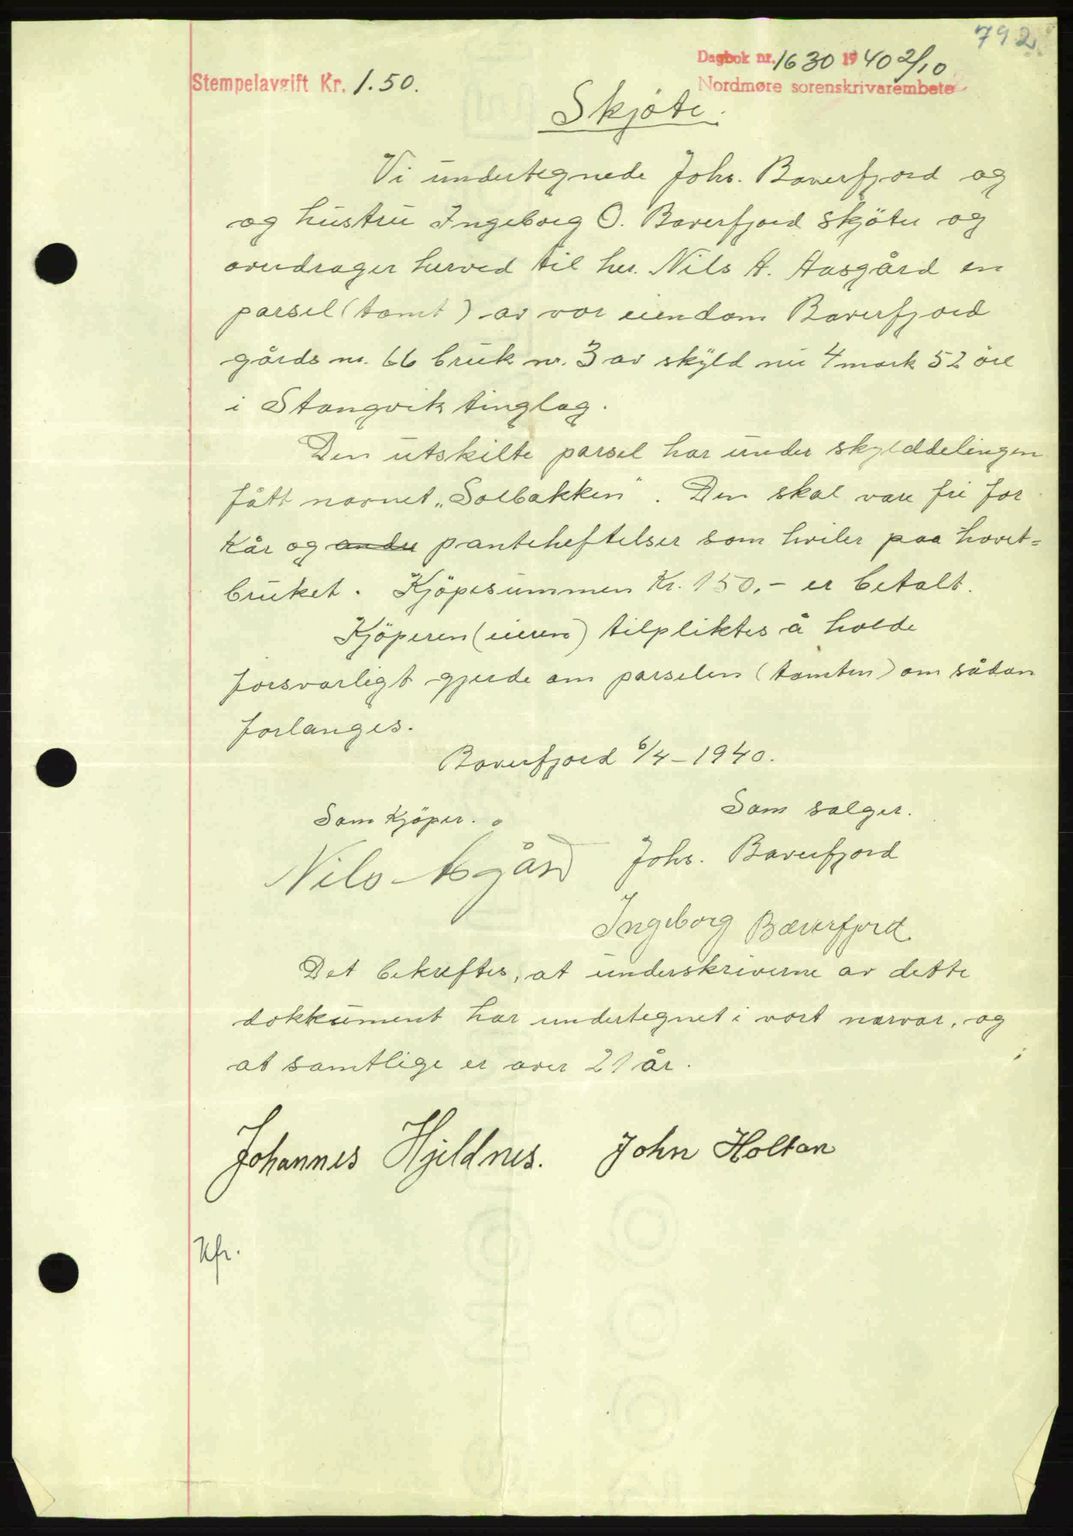 792
Dagbok nr. 1630 1940 2/10
Stempelavgift Kr. 1.50.
Nordmøre sorenskrivarembete
Skjöte.
Vi undertegnede Johs. Bæverfjord og
og hustru Ingeborg O. Bæverfjord skjöter og
overdrager herved til hr. Nils A. Aasgård en
parsel (tomt) av vor eiendom Bæverfjord
gårds nr. 66 bruk nr. 3 av skyld nu 4 mark 52 öre
i Stangvik tinglag.
Den utskilte parsel har under skylddelingen
fått navnet „Solbakken". Den skal være fri for
kår og andre panteheftelser som hviler paa hovet-
bruket. Kjöpesummen Kr. 150.- er betalt.
Kjöperen (eieren) tilpliktes å holde
forsvarligt gjerde om parselen (tomten) om sådan
forlanges.
Bæverfjord 6/4-1940.
Som kjöper. Som selger.
Nils Asgård Johs. Bæverfjord
Ingeborg Bæverfjord.
Det bekreftes, at underskriverne av dette
dokkument har undertegnet i vort nærvær, og
at samtlige er over 21 år.
Johannes Hjeldnes. John Holtan
Kfr.